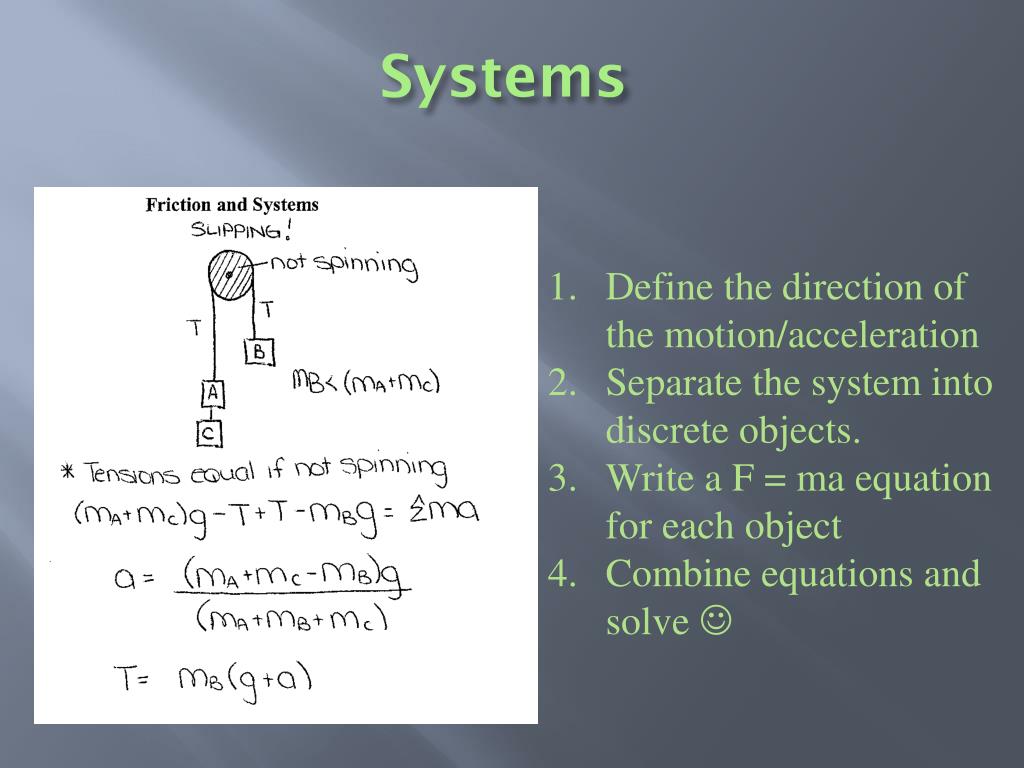 Systems
Friction and Systems
SLIPPING!
not spinning
T
T
B
mB<(mA+mC)
A
C
* Tensions equal if not spinning
(mA+mC)g-T+T-mBg= Σma
a= (mA+mC-mB)g
(mA+mB+mC)
T= mB(g+a)
1. Define the direction of
the motion/acceleration
2. Separate the system into
discrete objects.
3. Write a F = ma equation
for each object
4. Combine equations and
solve ☺